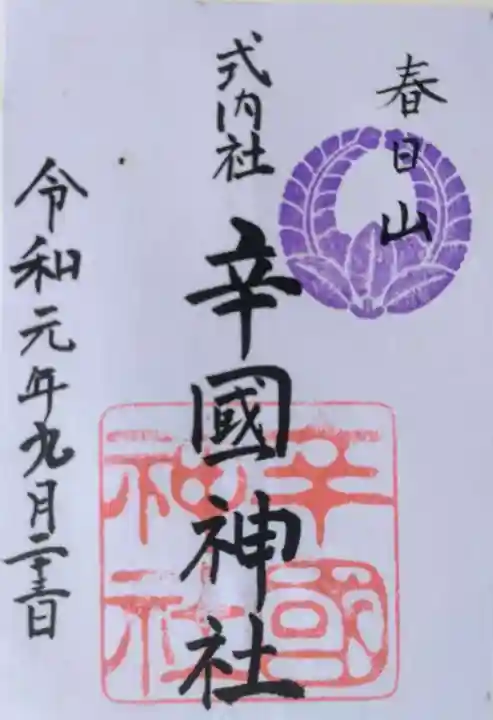 春日山
式内社
辛國神社
辛國
神社
令和元年九月二十三日